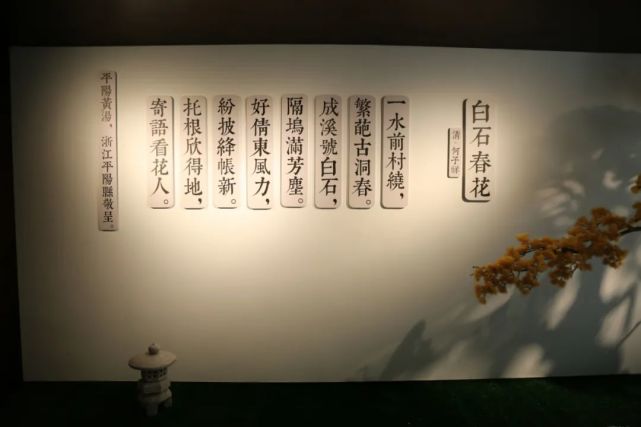 白石春花
清 何子祥
一水前村繞，
繁葩古洞春。
成溪號白石，
隔塢滿芳塵。
好倩東風力，
紛披絳帳新。
托根欣得地，
寄語看花人。
平陽黃湯，浙江平陽縣敬呈。